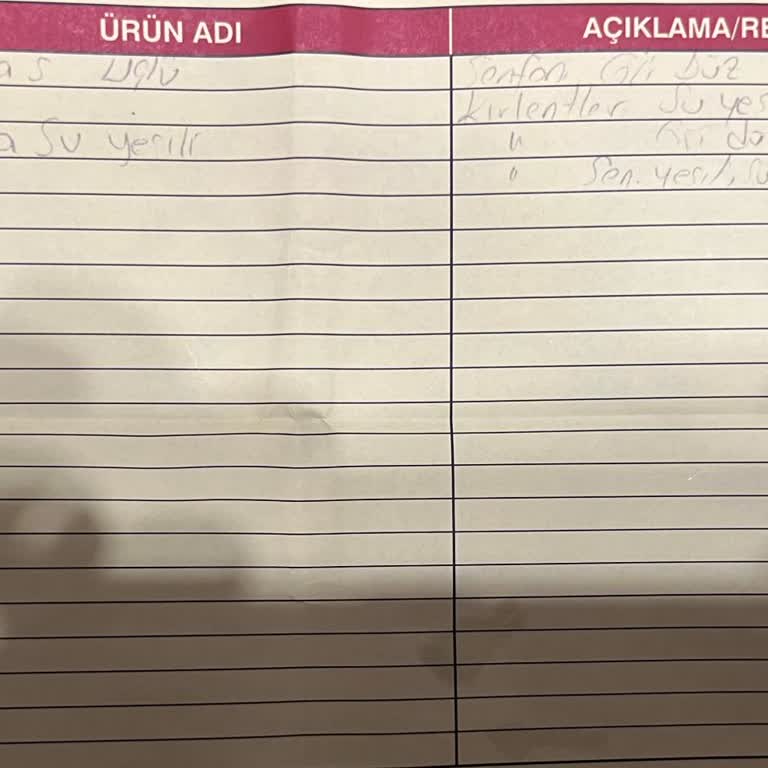 ÜRÜN ADI AÇIKLAMA/RE
a s Üçlü Gri Düz
Kırlentler Su yeş
a Su yeşili " Gri dü
" Şen. yeşil, su